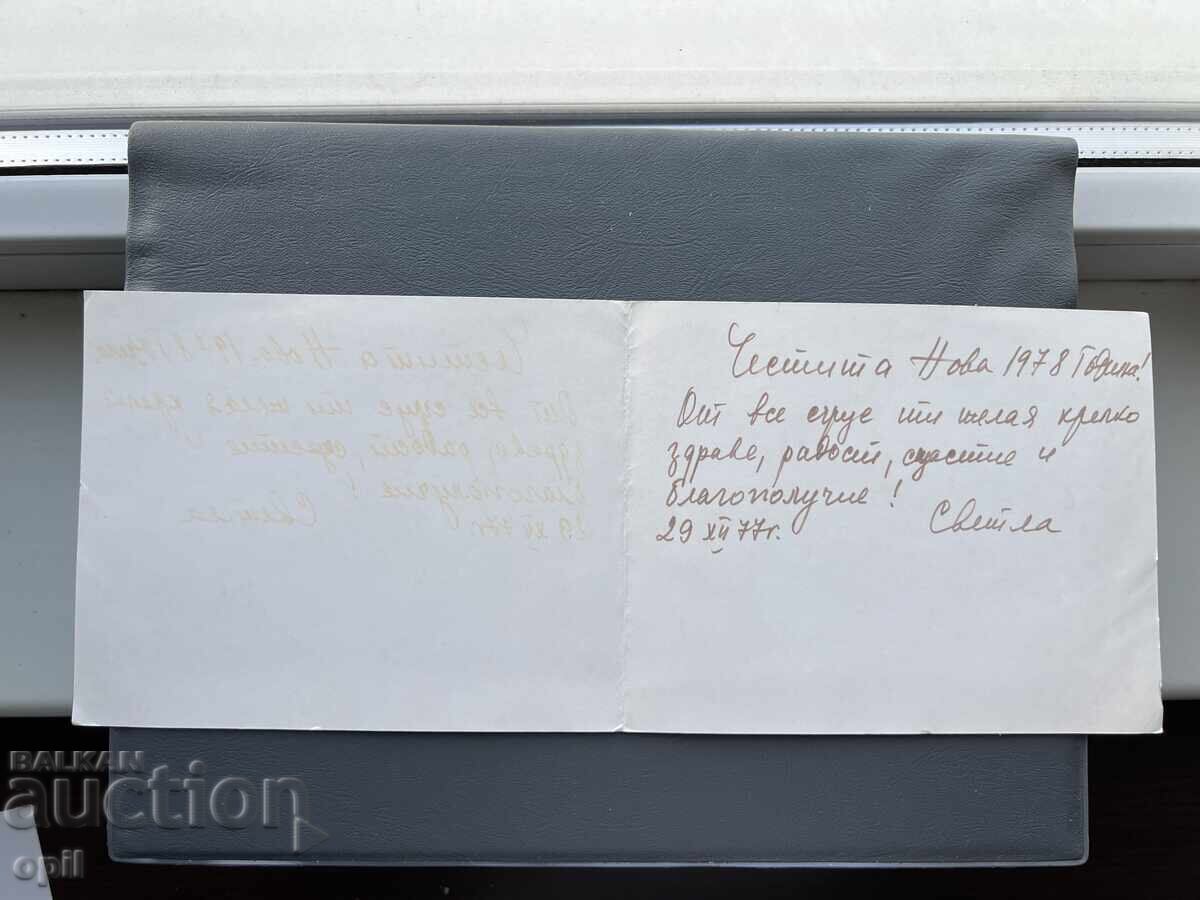 Честита Нова 1978 Година!
От все сърце ти желая крепко
здраве, радост, щастие и
благополучие!
29 XII 77г. Светла
BALKAN
auction
opil